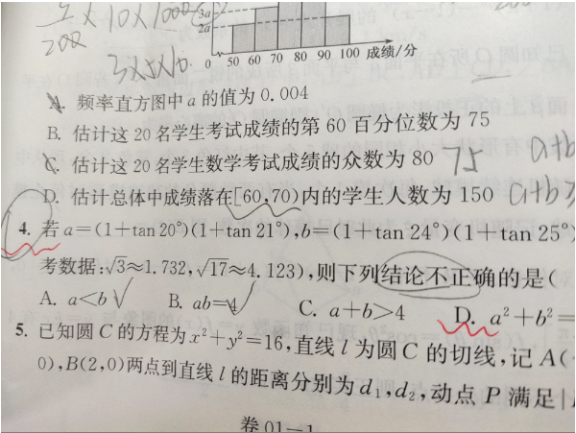 200
3×5×10
3a
2a
0 50 60 70 80 90 100 成绩/分
A. 频率直方图中a的值为0.004
B. 估计这20名学生考试成绩的第60百分位数为75
C. 估计这20名学生数学考试成绩的众数为80 75 a+b
D. 估计总体中成绩落在[60,70)内的学生人数为150 a+b>
4. 若a=(1+tan 20°)(1+tan 21°),b=(1+tan 24°)(1+tan 25°)
考数据:√3≈1.732,√17≈4.123),则下列结论不正确的是(
A. a<b √ B. ab=4 √ C. a+b>4 D. a²+b²=
5. 已知圆C的方程为x²+y²=16,直线l为圆C的切线,记A(
0),B(2,0)两点到直线l的距离分别为d₁,d₂,动点P满足|
卷01—1